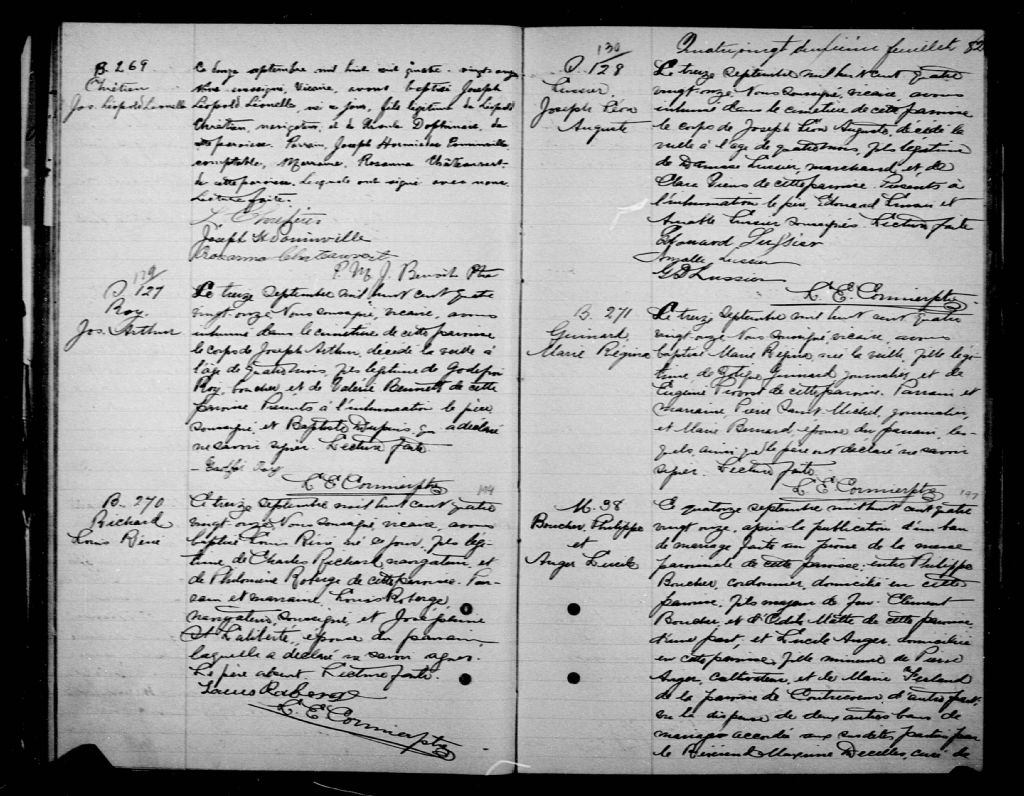 B. 269
Chrétien
Jos. Léopold Lionelle
Ce onze septembre mil huit cent quatre-vingt-onze
Nous soussigné, Vicaire, avons baptisé Joseph
Léopold Lionelle, né ce jour, fils légitime de Léopold
Chrétien, navigateur, et de
cette paroisse. Parrain, Joseph
comptable, Marraine, Rosanna Châteauvert
de cette paroisse. Lesquels ont signé avec nous.
Lecture faite.
Joseph H Dominville
Rosanna Chateauvert
P. M. J. Benoit Ptre
129
S. 127
Roy.
Jos. Arthur
Le treize septembre mil huit cent quatre
vingt onze Nous soussigné, vicaire, avons
inhumé dans le cimetière de cette paroisse
le corps de Joseph Arthur, décédé la veille à
l'âge de quatre mois, fils légitime de Godefroi
Roy, boucher, et de Valérie Bennett de cette
paroisse Présents à l'inhumation le père
soussigné et Baptiste Dupuis, qui a déclaré
ne savoir signer. Lecture faite
Roy
L. E. Cormier ptre
B. 270
Richard
Louis René
194
Ce treize septembre mil huit cent quatre
vingt onze Nous soussigné vicaire, avons
baptisé Louis René né ce jour, fils légi-
time de Charles Richard, navigateur, et
de Philomène Roberge de cette paroisse. Par-
rain et marraine, Louis Roberge,
navigateur, soussigné, et Joséphine
St Laliberté, épouse du parrain,
laquelle a déclaré ne savoir signer.
Le père absent Lecture faite.
Louis Roberge
L. E. Cormier ptre
Quatre vingt deuxième feuillet 82
130
S. 128
Lussier.
Joseph Léon
Auguste
Le treize septembre mil huit cent quatre
vingt onze. Nous soussigné, vicaire, avons
inhumé dans le cimetière de cette paroisse
le corps de Joseph Léon Auguste, décédé la
veille à l'âge de quatre mois, fils légitime
de Lussier, marchand, et de
Clara Viens de cette paroisse. Présents à
l'inhumation le père, Edouard Lussier et
Amable Lussier soussignés. Lecture faite
Edouard Lussier
Amable Lussier
G D Lussier
L. E. Cormier ptre
B. 271
Guimard
Marie Régina
Le treize septembre mil huit cent quatre
vingt onze. Nous soussigné vicaire, avons
baptisé Marie Régina, née la veille, fille légi-
time, de Guimard journalier, et de
Eugénie de cette paroisse. Parrain et
marraine, Pierre Saint Michel, journalier,
et Marie Bernard, épouse du parrain, les-
quels, ainsi que le père ont déclaré ne savoir
signer. Lecture faite
L. E. Cormier ptre
197
M. 38
Boucher, Philippe
et
Auger Lucile
Ce quatorze septembre mil huit cent quatre
vingt onze, après la publication d'un ban
de mariage faite au prône de la messe
paroissiale de cette paroisse, entre Philippe
Boucher, cordonnier, domicilié en cette
paroisse, fils majeur de feu Clément
Boucher et d'Odile Mathe de cette paroisse,
d'une part, et Lucile Auger, domiciliée
en cette paroisse, fille mineure de Pierre
Auger, cultivateur, et de Marie Ferland
de la paroisse de Contrecœur, d'autre part,
vu la dispense de deux autres bans de
mariage accordée aux susdites parties par
le Révérend Maxime Decelles, curé de